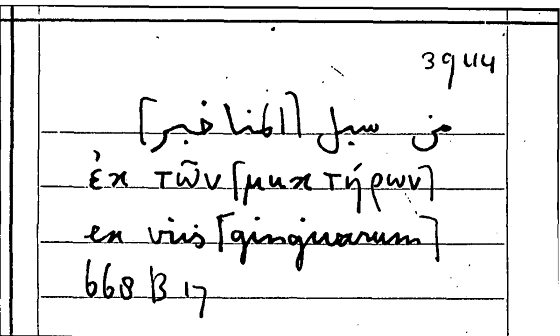 3944
من سبل [المناخير]
ἐκ τῶν [μυκτήρων]
ex viis [gingivarum]
668 B 17